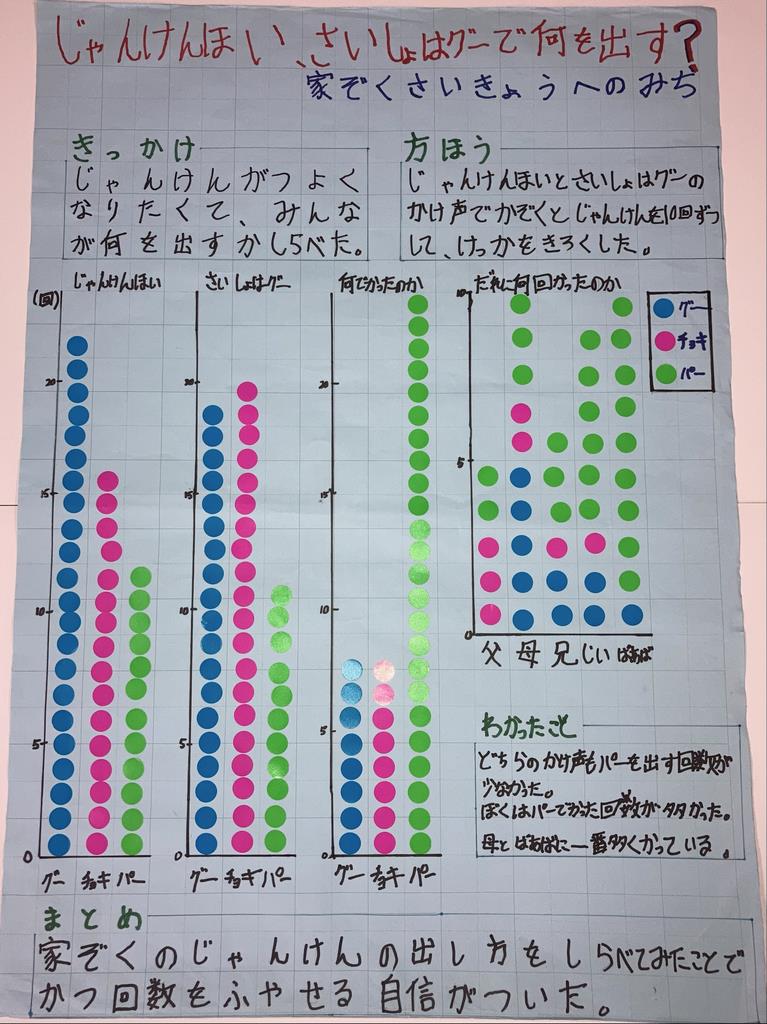 じゃんけんほい、さいしょはグーで何を出す?
家ぞくさいきょうへのみち
きっかけ
じゃんけんがつよく
なりたくて、みんな
が何を出すかしらべた。
方ほう
じゃんけんほいとさいしょはグーの
かけ声でかぞくとじゃんけんを10回ずつ
して、けっかをきろくした。
じゃんけんほい
(回)
20
15
10
5
0
グー チョキ パー
さいしょはグー
20
15
10
5
0
グー チョキ パー
何でかったのか
20
15
10
5
0
グー チョキ パー
だれに何回かったのか
10
5
0
父 母 兄 じい ばあば
グー
チョキ
パー
わかったこと
どちらのかけ声もパーを出す回数が
少なかった。
ぼくはパーでかった回数が多かった。
母とばあばに一番多くかっている。
まとめ
家ぞくのじゃんけんの出し方をしらべてみたことで
かつ回数をふやせる自信がついた。